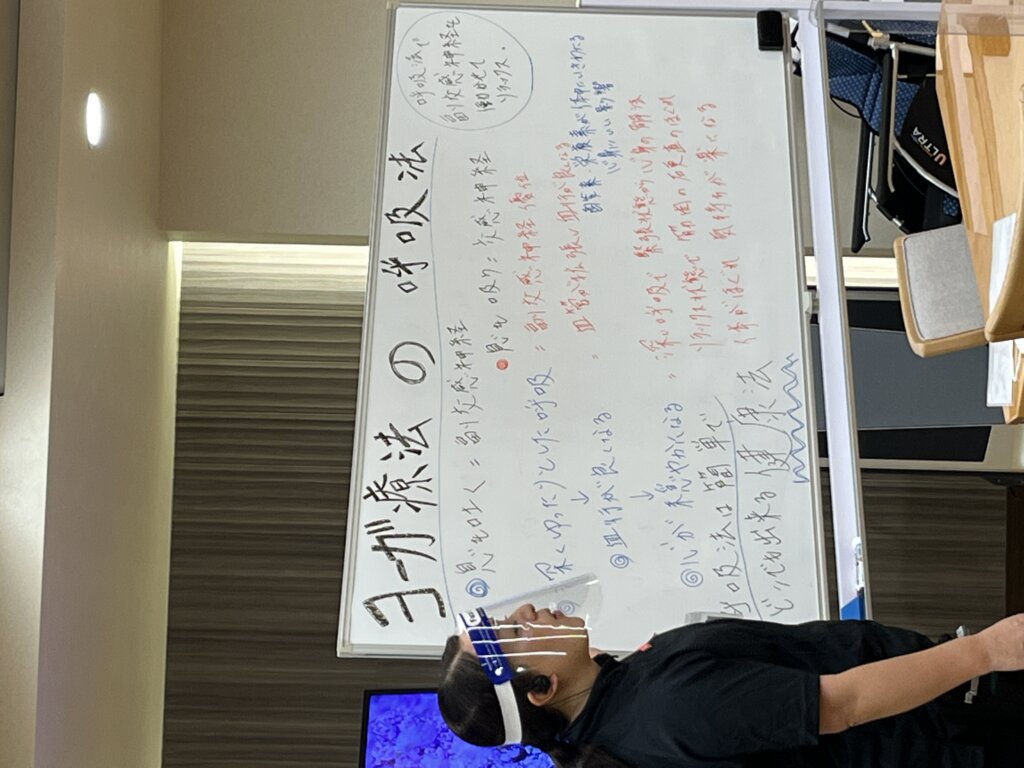 ヨーガ療法の呼吸法
呼吸法で
副交感神経を
働かせて
リラックス。
息をはく = 副交感神経
息を吸う = 交感神経
深くゆったりとした呼吸
息
= 副交感神経優位
↓
血行が良くなる
= 血管が拡張し血行が良くなる
酸素が体中にいきわたる
心身にいい影響
↓
心が穏やかになる
= 深い呼吸で 緊張状態の心身の解放
リラックス状態で 筋肉の
体がほぐれ 気持ちが楽になる
呼吸法は簡単で
どこでも出来る健康法
ULTRA